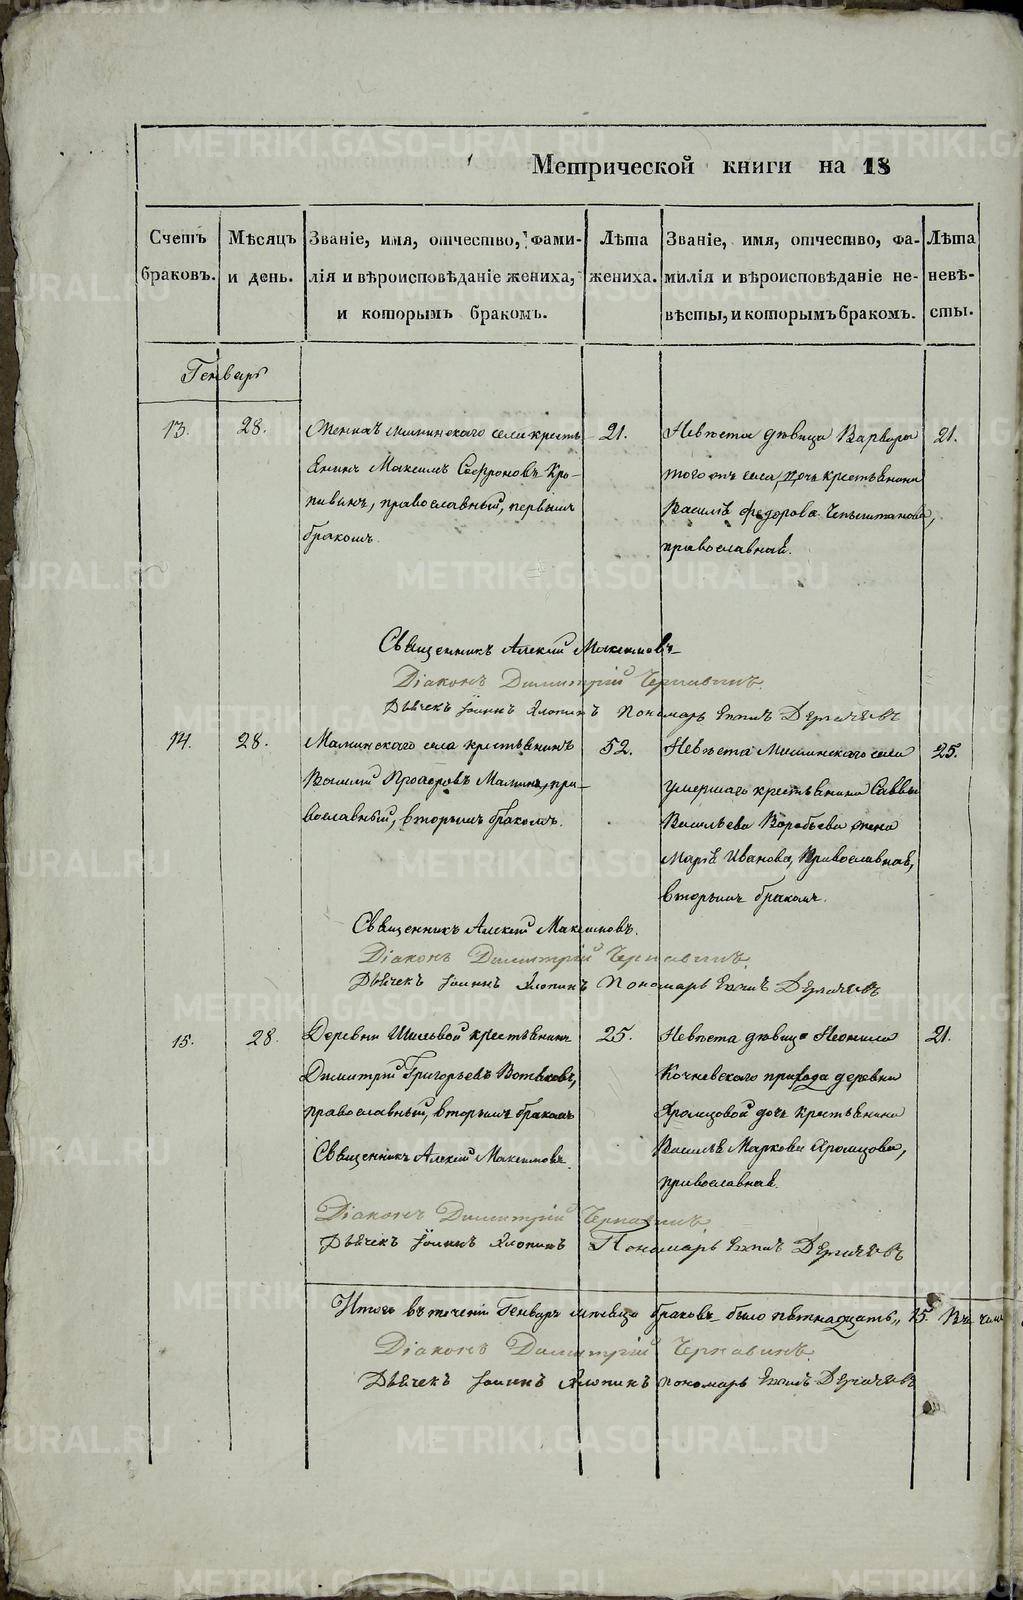 Метрической книги на 18
Счетъ браковъ.
Мѣсяцъ и день.
Званіе, имя, отчество, фами-
лія и вѣроисповѣданіе жениха,
и которымъ бракомъ.
Лѣта жениха.
Званіе, имя, отчество, фа-
милія и вѣроисповѣданіе не-
вѣсты, и которымъ бракомъ.
Лѣта невѣ-
сты.
Генварь
13.
28.
Женихъ Маминскаго села кресть
янинъ Максимъ Софроновъ Кро-
пивинъ, православный, первымъ
бракомъ.
21.
Невѣста дѣвица Варвара
того жъ села, дочь крестьянина
Василія Федорова
православная.
21.
Священникъ Алексій Максимовъ
Діаконъ Димитрій Чернавинъ.
Дьячекъ Іоаннъ Хлопинъ Пономарь
14.
28.
Маминскаго села крестьянинъ
Василій Прохоровъ Маминъ, пра-
вославный, вторымъ бракомъ.
52.
Невѣста Маминскаго села
умершаго крестьянина Саввы
Васильева Воробьева жена
Марія Иванова, Православная,
вторымъ бракомъ.
25.
Священникъ Алексій Максимовъ.
Діаконъ Димитрій Чернавинъ
Дьячекъ Іоаннъ Хлопинъ Пономарь
15.
28.
Деревни Шиловой крестьянинъ
Димитрій Григорьевъ Вотяковъ,
православный, вторымъ бракомъ
25.
Невѣста дѣвица Неонила
Кочневскаго прихода деревни
Хромцовой дочь крестьянина
Василія Маркова Хромцова,
православная.
21.
Священникъ Алексій Максимовъ.
Діаконъ Димитрій Чернавинъ
Дьячекъ Іоаннъ Хлопинъ Пономарь
Итого въ теченіи Генваря мѣсяца браковъ было пятнадцать „ 15.
Діаконъ Димитрій Чернавинъ.
Дьячекъ Іоаннъ Хлопинъ пономарь
METRIKI.GASO-URAL.RU